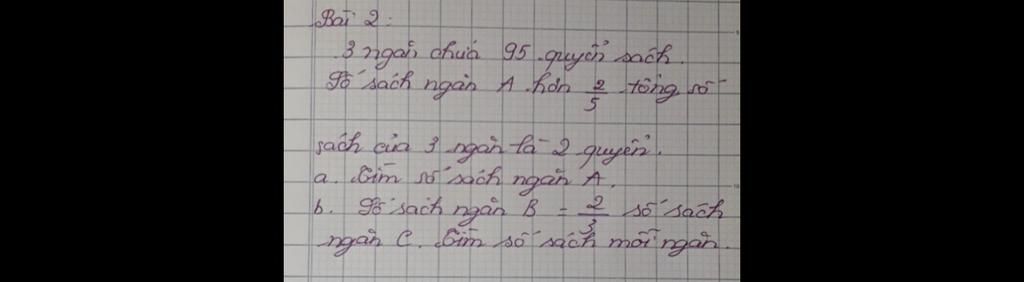 Bài 2:
3 ngăn chứa 95 quyển sách.
Số sách ngăn A hơn 2/5 tổng số
sách của 3 ngăn là 2 quyển.
a. Tìm số sách ngăn A.
b. Số sách ngăn B = 2/3 số sách
ngăn C. Tìm số sách mỗi ngăn.